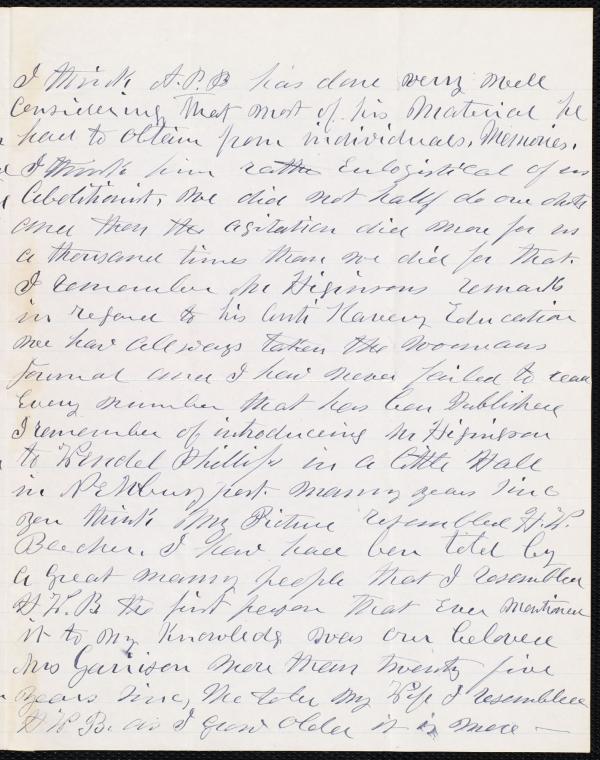 I think A.P.B has done very well
Considering that most of his Material he
had to obtain from individuals, Memories.
I think him rather Eulogistical of us
Abolitionist, we did not half do our duty
and then the agitation did more for us
a thousand times than we did for that.
I remember Mr Higinsons remark
in regard to his Anti Slavery Education
we have allways taken the womans
Journal and I have never failed to read
Every number that has ben Published
I remember of introduceing Mr Higinson
to Wendel Phillips in a little Hall
in Newburyport manny years since
you think My Picture resembled H.W.
Beecher. I have had ben told by
a great manny people that I resembled
H W. B the first person that Ever mentioned
it to my Knowledg was our beloved
Mrs Garrison more than twenty five
years since, She told my Wife I resembled
H W B. as I grow older it is more —